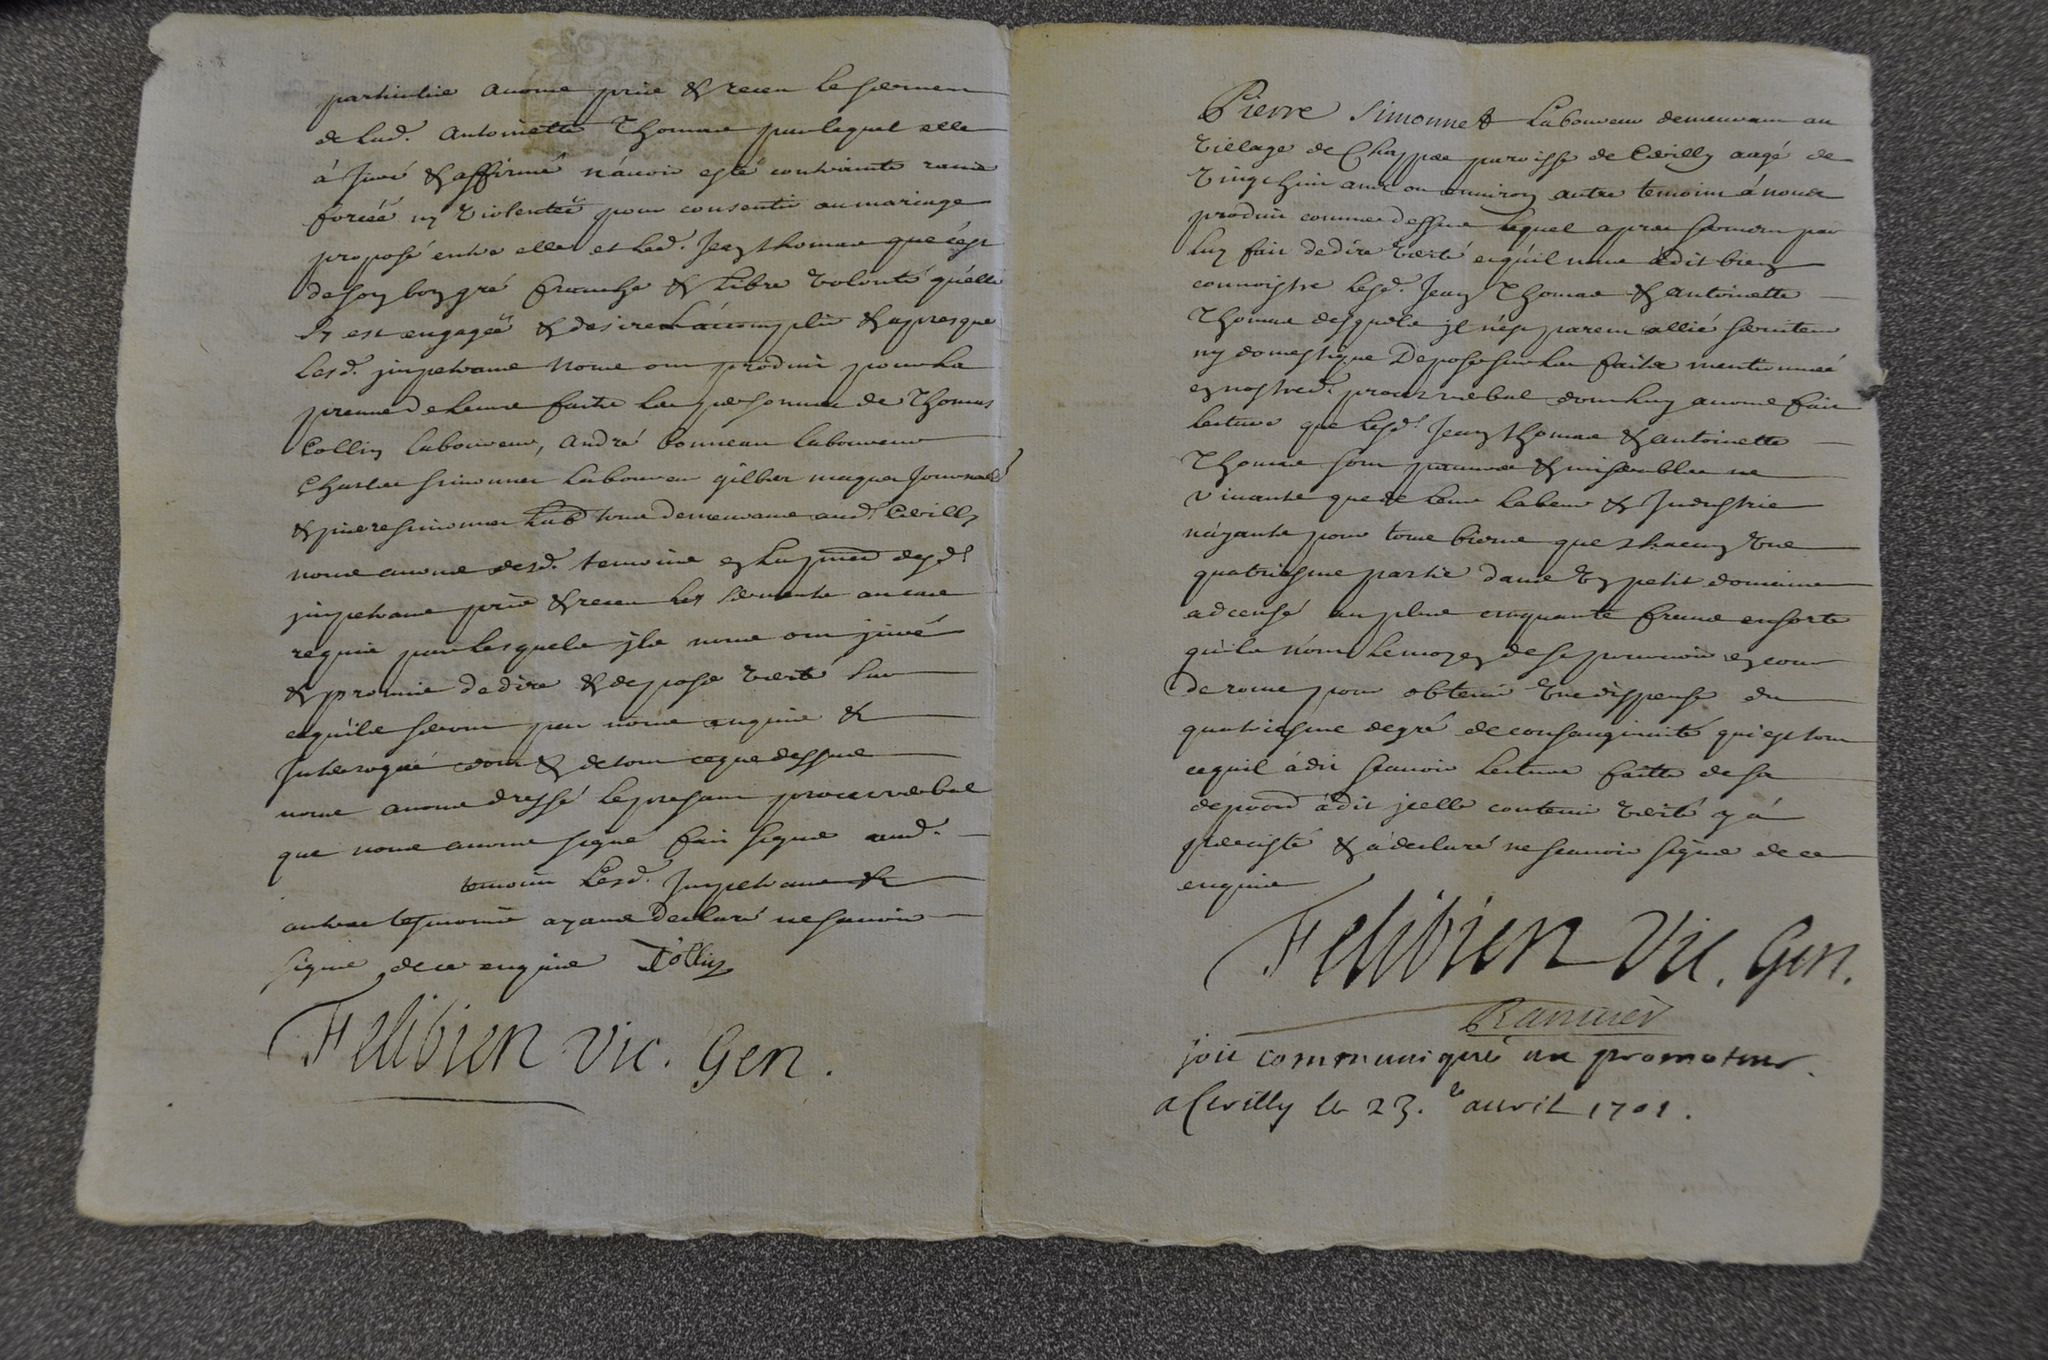 particulie avons prise & receu le serment
de lad. Antoinette Thomas par lequel elle
à juré & affirmé n'avoir esté contrainte
forcéé ny violentéé pour consentir au mariage
proposé entre elle et led. Jean thomas que c'est
de son bon gré franche & libre volonté qu'elle
sy est engagéé & desire l'accomplir & apres que
lesd. jmpetrans nous ont produit pour la
preuve de leurs faits les personnes de Thomas
Collin laboureur, André bonneau laboureur
Charles simonnet laboureur gilbert maquer Journall
& pierre simonnet Lab tous demeurans aud. Cerilly
nous avons desd. temoins en la desd
jmpetrans pris & receu les serments au cas
requis par lesquels jls nous ont juré
& promis de dire & deposé verité sur
ce qu'ils seront par nous enquis &
Interrogéé dont & de tout ce que dessus
nous avons dressé le present proces verbal
que nous avons signé fait signé aud.
temoin Lesd. Jmpetrans &
autres tesmoins ayans declaré ne scavoir
signé de ce enquis Collin
Felibien Vic. Gen.
Pierre Simonnet Laboureur demeurant au
Village de parroisse de Cerilly aagé de
Vingt huit ans ou environ autre temoin à nous
produit comme dessus lequel apres serment par
luy fait de dire verité ce qu'il nous à dit bien
connoistre lesd. Jean Thomas & antoinette
Thomas desquels jl n'est parent allié serviteur
ny domestique Depose sur les faits mentionnéé
en nostred. proces verbal dont luy avons fait
lecture que lesd. Jean thomas & antoinette
Thomas sont pauvres & miserables ne
vivants que de leur labeur & Industrie
n'ayants pour tous biens que chacun une
quatriesme partie dans un petit domaine
adcensé au plus cinquante francs en sorte
qu'ils n'ont le moyen de se pourvoir en cour
de rome pour obtenir une dispense du
quatriesme degré de consanguinité qui est tout
ce quil à dit scavoir lecture faitte de sa
deposon à dit jcelle contenir verité y à
persisté & à declaré ne scavoir signé de ce
enquis
Felibien Vic. Gen.
soit communiqué au promoteur.
a Cerilly le 23.e avril 1701.